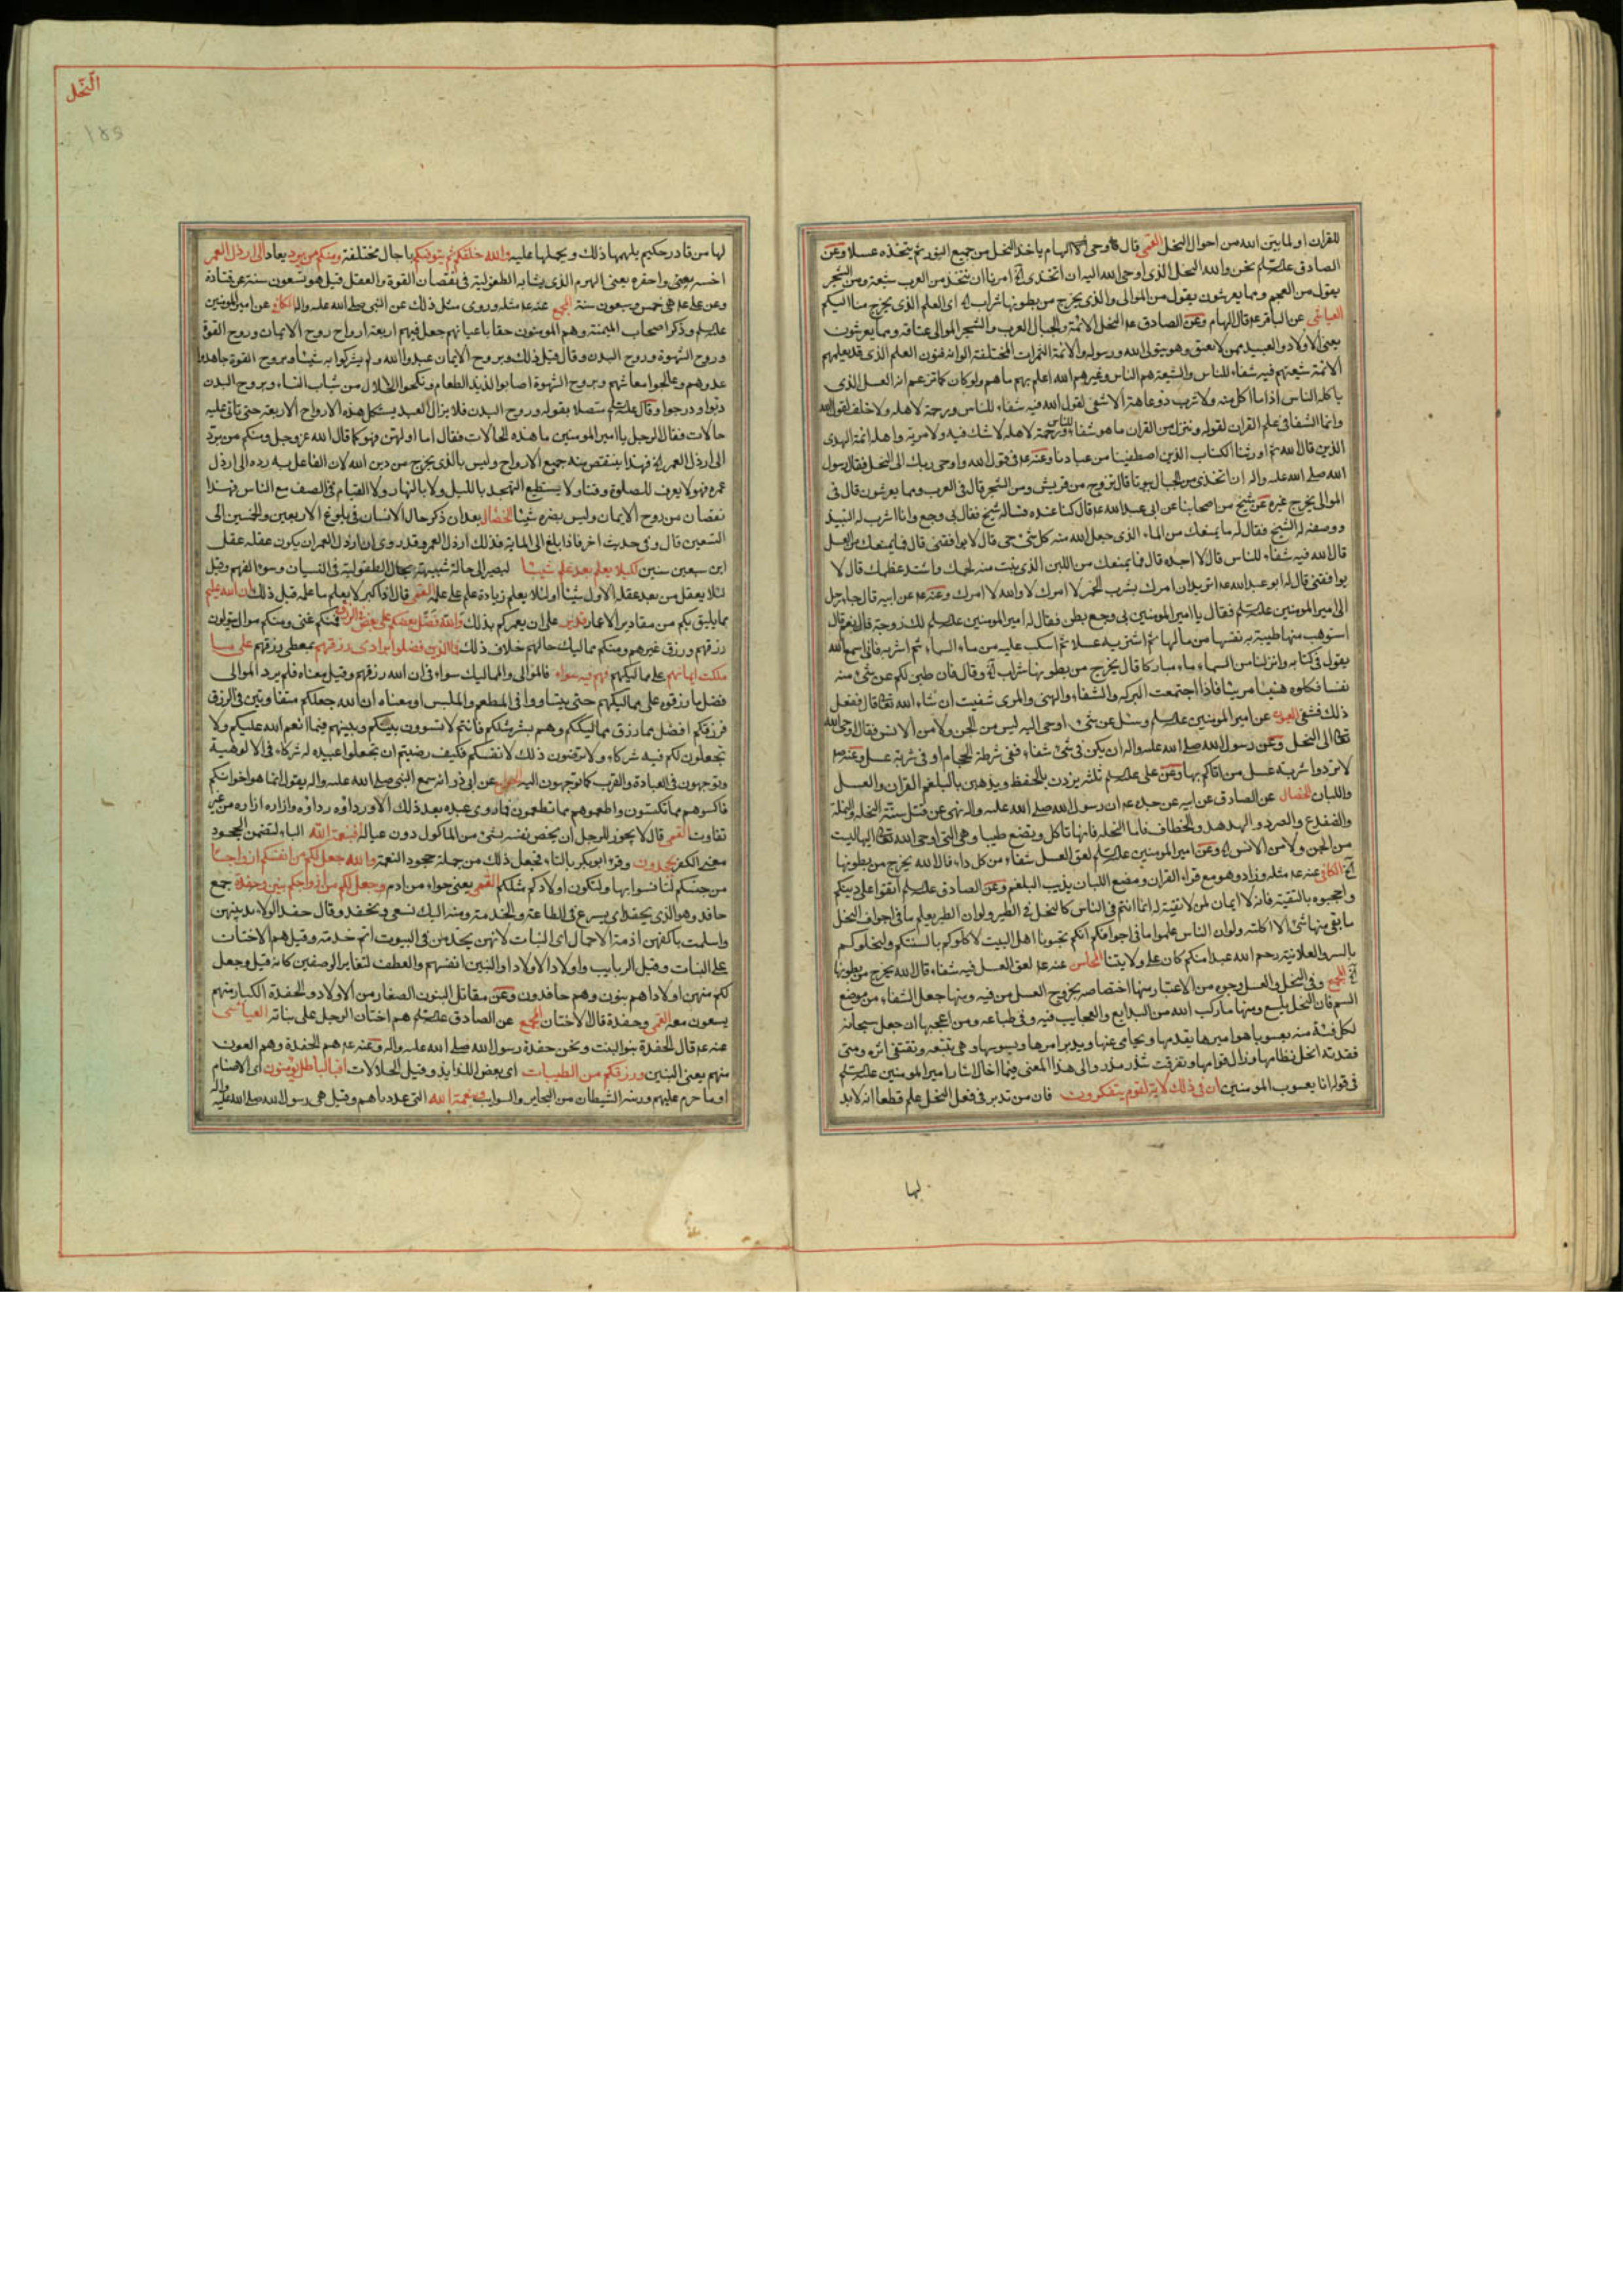 للقران او لما بين الله من احوال النحل القمي قال وحي الهام ياخذ النحل من جميع النور ثم يتخذه عسلا وعن
الصادق نحن والله النحل الذي اوحى الله اليه ان اتخذي امرنا ان نتخذ من العرب شيعة ومن الشجر
يقول من العجم ومما يعرشون يقول من الموالي والذي يخرج من بطونها شراب اي العلم الذي يخرج منا اليكم
العياشي عن الباقر قال الهام وعن الصادق النحل الائمة والجبال العرب والشجر الموالي عتاقة ومما يعرشون
يعني الاولاد والعبيد ممن لا يعتق وهو يتولى الله ورسوله والائمة الثمرات المختلفة الوانه فنون العلم الذي قد يعلمهم
الائمة شيعتهم فيه شفاء للناس والشيعة هم الناس وغيرهم الله اعلم بهم ما هم ولو كان كما تزعم انه العسل الذي
ياكله الناس اذا ما اكل منه ولا شرب ذو عاهة الا شفي لقول الله فيه شفاء للناس ولا خلف لقول الله
وانما الشفا في علم القران لقوله وننزل من القران ما هو شفاء ورحمة لاهله لا شك فيه ولا مرية واهله ائمة الهدى
الذين قال الله ثم اورثنا الكتاب الذين اصطفينا من عبادنا وعنه في قول الله واوحى ربك الى النحل فقال رسول
الله صلى الله عليه واله ان اتخذي من الجبال بيوتا قال تزوج من قريش ومن الشجر قال في العرب ومما يعرشون قال في
الموالي يخرج غيره عن شيخ من اصحابنا عن ابي عبد الله قال كنا عنده فساله شيخ فقال بي وجع وانا اشرب له النبيذ
ووصفه له الشيخ فقال له ما يمنعك من الماء الذي جعل الله منه كل شيء حي قال لا يوافقني قال فما يمنعك من العسل
قال الله فيه شفاء للناس قال لا اجده قال فما يمنعك من اللبن الذي نبت منه لحمك واشتد عظمك قال لا
يوافقني قال له ابو عبد الله اتريد ان امرك بشرب الخمر لا امرك لا والله لا امرك وعنه عن ابيه قال جاء رجل
الى امير المومنين فقال يا امير المومنين بي وجع بطن فقال له امير المومنين لك زوجة قال نعم قال
استوهب منها طيبة به نفسها من مالها ثم اشتر به عسلا ثم اسكب عليه من ماء السماء ثم اشربه فاني اسمع الله
يقول في كتابه وانزلنا من السماء ماء مباركا قال يخرج من بطونها شراب وقال فان طبن لكم عن شيء منه
نفسا فكلوه هنيئا مريئا فاذا اجتمعت البركة والشفاء والهنيء والمري شفيت ان شاء الله قال ففعل
ذلك فشفي العيون عن امير المومنين وسئل عن شيء اوحى اليه ليس من الجن ولا من الانس فقال اوحى الله
الى النحل وعن رسول الله صلى الله عليه واله ان يكن في شيء شفاء ففي شرطة الحجام او في شربة عسل وعنه
لا تردوا شربة عسل من اتاكم بها وعن علي ثلثة يزدن بالحفظ ويذهبن بالبلغم القران والعسل
واللبان الخصال عن الصادق عن ابيه عن جده ان رسول الله صلى الله عليه واله نهى عن قتل ستة النحلة والنملة
والضفدع والصرد والهدهد والخطاف فاما النحلة فانها تاكل وتضع طيبا وهي التي اوحى الله اليها ليست
من الجن ولا من الانس وعن امير المومنين لعق العسل شفاء من كل داء قال الله يخرج من بطونها
الكافي عنه مثله وزاد وهو مع قراءة القران ومضغ اللبان يذيب البلغم وعن الصادق اتقوا على دينكم
واحجبوه بالتقية فانه لا ايمان لمن لا تقية له انما انتم في الناس كالنحل في الطير ولو ان الطير يعلم ما في اجواف النحل
ما بقي منها شيء الا اكلته ولو ان الناس علموا ما في اجوافكم انكم تحبونا اهل البيت لاكلوكم بالسنتكم ولنحلوكم
بالسر والعلانية رحم الله عبدا منكم كان على ولايتنا المحاسن عنه لعق العسل فيه شفاء قال الله يخرج من بطونها
المجمع وفي النحل والعسل وجوه من الاعتبار منها اختصاصه بخروج العسل من فيه ومنها جعل الشفاء من موضع
السم فان النحل يلسع ومنها ما ركب الله من البدايع والعجايب فيه وفي طباعه ومن اعجبها ان جعل سبحانه
لكل فئة منه يعسوبا هو اميرها يقدمها ويحامي عنها ويدبر امرها ويسوسها وهي تتبعه وتقتفي اثره ومتى
فقدته انحل نظامها وزال قوامها وتفرقت شذر مذر والى هذا المعنى فيما اخال اشار امير المومنين
في قوله انا يعسوب المومنين ان في ذلك لاية لقوم يتفكرون فان من تدبر في فعل النحل علم قطعا انه لا بد
لها
النحل
لها من قادر حكيم يلهمها ذلك ويحملها عليه والله خلقكم ثم يتوفيكم باجال مختلفة ومنكم من يرد يعاد الى ارذل العمر
اخسه يعني واحقره يعني الهرم الذي يشابه الطفولية في نقصان القوة والعقل قيل هو تسعون سنة عن قتادة
وعن علي هي خمس وسبعون سنة المجمع عنه مثله وروى مثل ذلك عن النبي صلى الله عليه واله الكافي عن امير المومنين
وذكر اصحاب الميمنة وهم المومنون حقا باعيانهم جعل فيهم اربعة ارواح روح الايمان وروح القوة
وروح الشهوة وروح البدن وقال قبل ذلك وبروح الايمان عبدوا الله ولم يشركوا به شيئا وبروح القوة جاهدوا
عدوهم وعالجوا معاشهم وبروح الشهوة اصابوا لذيذ الطعام ونكحوا الحلال من شباب النساء وبروح البدن
دبوا ودرجوا وقال متصلا بقوله وروح البدن فلا يزال العبد يستكمل هذه الارواح الاربعة حتى ياتي عليه
حالات فقال الرجل يا امير المومنين ما هذه الحالات فقال اما اولهن فهو كما قال الله عز وجل ومنكم من يرد
الى ارذل العمر فهذا ينتقص منه جميع الارواح وليس بالذي يخرج من دين الله لان الفاعل به رده الى ارذل
عمره فهو لا يعرف للصلوة وقتا ولا يستطيع التهجد بالليل ولا بالنهار ولا القيام في الصف مع الناس فهذا
نقصان من روح الايمان وليس يضره شيئا الخصال بعد ان ذكر حال الانسان في بلوغ الاربعين والخمسين الى
التسعين قال وفي حديث اخر فاذا بلغ الى الماية فذلك ارذل العمر وقد روي ان ارذل العمر ان يكون عقله عقل
ابن سبعين سنين لكيلا يعلم بعد علم شيئا ليصير الى حالة شبيهة بحال الطفولية في النسيان وسوء الفهم وقيل
لئلا يعقل من بعد عقله الاول شيئا او لئلا يعلم زيادة علم على علمه القمي قال اذا كبر لا يعلم ما علمه قبل ذلك ان الله عليم
بما يليق بكم من مقادير الاعمار قدير على ان يعمركم بذلك والله فضل بعضكم على بعض في الرزق فمنكم غني ومنكم موال يتولون
رزقهم ورزق غيرهم ومنكم مماليك حالهم خلاف ذلك فما الذين فضلوا برادي رزقهم بمعطي رزقهم على ما
ملكت ايمانهم على مماليكهم فهم فيه سواء فالموالي والمماليك سواء في ان الله رزقهم وقيل معناه فلم يرد الموالي
فضل ما رزقوه على مماليكهم حتى يتساووا في المطعم والملبس او معناه ان الله جعلكم متفاوتين في الرزق
فرزقكم افضل مما رزق مماليككم وهم بشر مثلكم فانتم لا تسوون بينكم وبينهم فيما انعم الله عليكم ولا
تجعلون لكم فيه شركاء ولا ترضون ذلك لانفسكم فكيف رضيتم ان تجعلوا عبيده له شركاء في الالوهية
وتوجهون في العبادة والقرب كما توجهون اليه عن ابي ذر انه سمع النبي صلى الله عليه واله يقول انما هم اخوانكم
فاكسوهم مما تكتسون واطعموهم مما تطعمون فما روي عبده بعد ذلك الا ورداؤه رداؤه وازاره ازاره من غير
تفاوت القمي قال لا يجوز للرجل ان يخص نفسه بشيء من الماكول دون عياله افبنعمة الله الباء لتضمن الجحود
معنى الكفر يجحدون وقرء ابو بكر بالتاء فجعل ذلك من جملة جحود النعمة والله جعل لكم من انفسكم ازواجا
من جنسكم لتانسوا بها ولتكون اولادكم مثلكم القمي يعني حواء من ادم وجعل لكم من ازواجكم بنين وحفدة جمع
حافد وهو الذي يحفد اي يسرع في الطاعة والخدمة ومنه اليك نسعى ونحفد وقال حفد الولائد بينهن
واسلمت باكفهن ازمة الاجمال اي البنات لانهن يخدمن في البيوت اتم خدمة وقيل هم الاختان
على البنات وقيل الربايب واولاد الاولاد او البنين انفسهم والعطف لتغاير الوصفين كانه قيل وجعل
لكم منهن اولادا هم بنون وهم حافدون وعن مقاتل البنون الصغار من الاولاد والحفدة الكبار منهم
يسعون معه القمي وحفدة قال الاختان المجمع عن الصادق هم اختان الرجل على بناته العياشي
عنه قال الحفدة بنو البنت ونحن حفدة رسول الله صلى الله عليه واله وعنه هم الحفدة وهم العون
منهم يعني البنين ورزقكم من الطيبات اي بعض اللذايذ وقيل الحلالات افبالباطل يؤمنون اي الاصنام
او ما حرم عليهم وزينه الشيطان من البحاير والسوايب وبنعمة الله التي عددناهم وقيل هي رسول الله صلى الله عليه واله